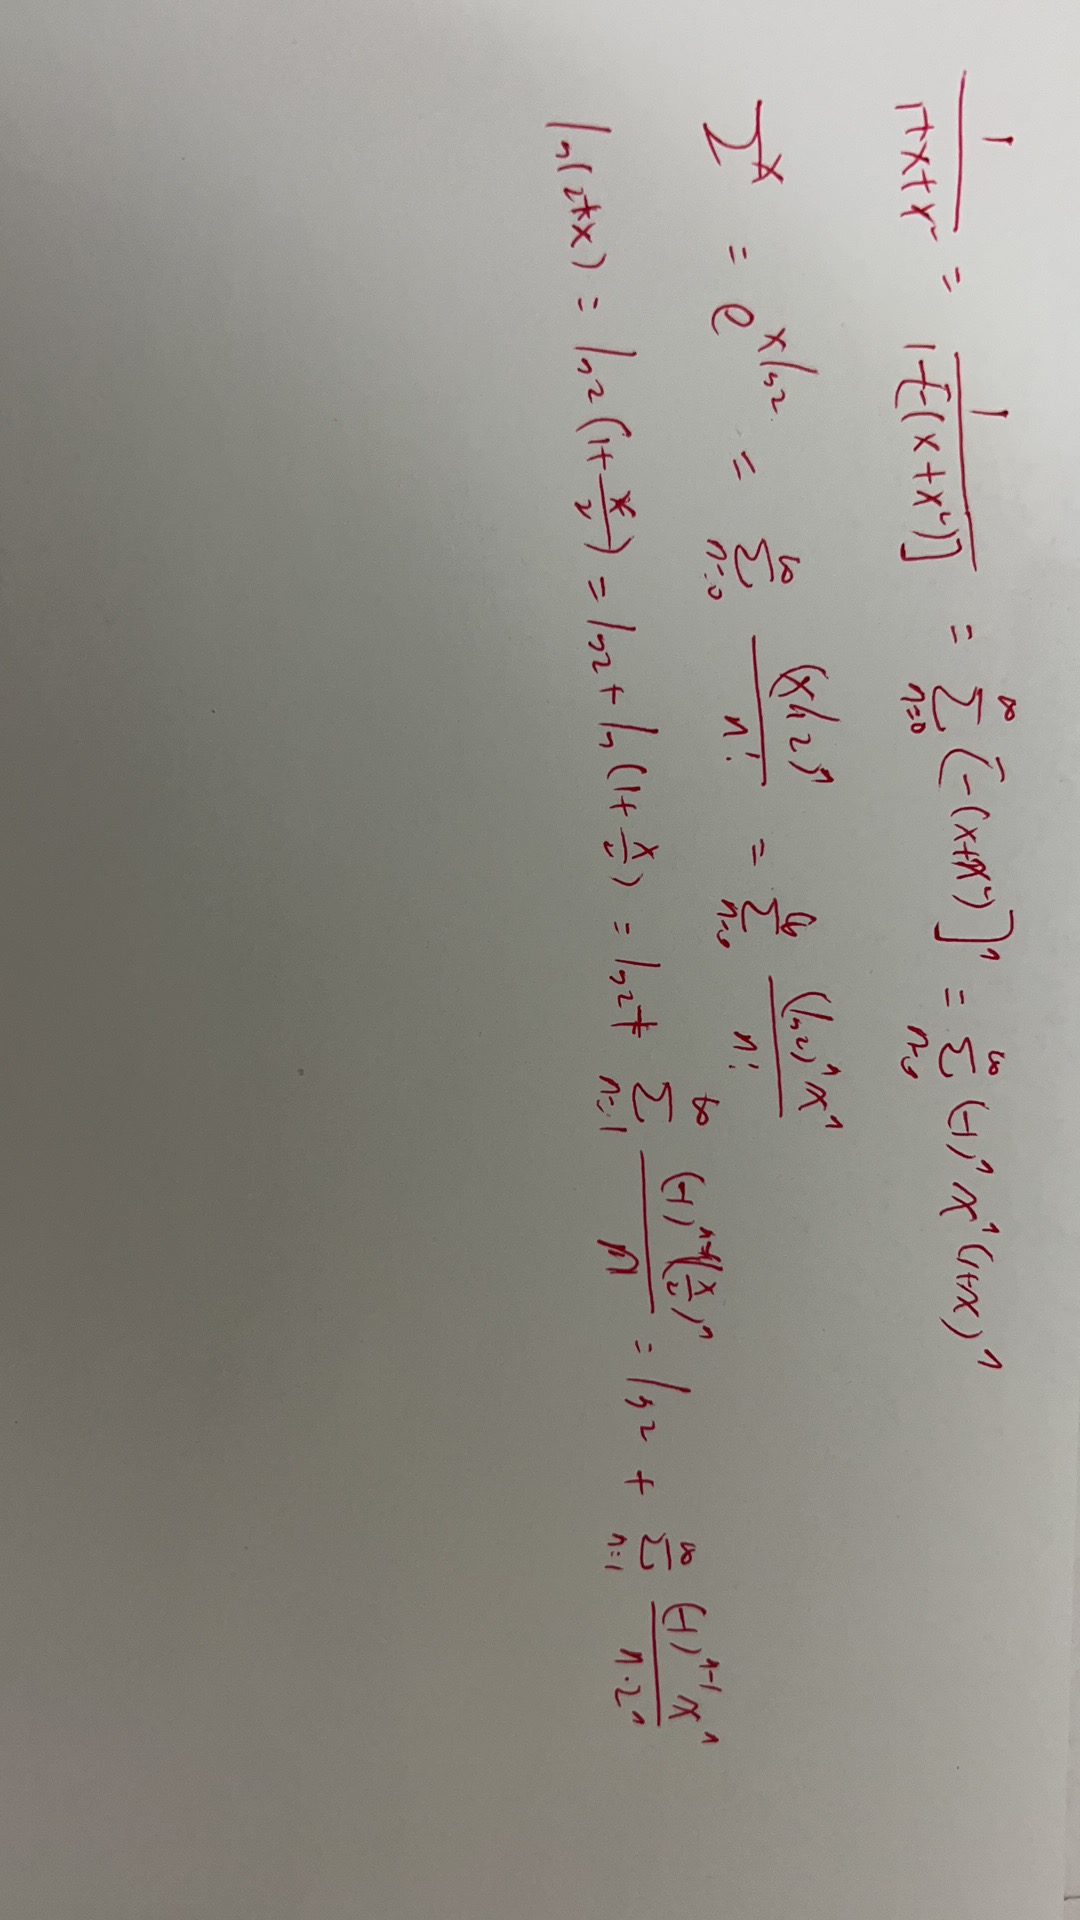 1/(1+x+x²) = 1/(1-[-(x+x²)]) = ∑_{n=0}^{∞} [-(x+x²)]ⁿ = ∑_{n=0}^{∞} (-1)ⁿ xⁿ (1+x)ⁿ
2ˣ = e^{x ln2} = ∑_{n=0}^{∞} (x ln2)ⁿ/n! = ∑_{n=0}^{∞} (ln2)ⁿ xⁿ/n!
ln(2+x) = ln2(1+x/2) = ln2 + ln(1+x/2) = ln2 + ∑_{n=1}^{∞} (-1)^{n-1}(x/2)ⁿ/n = ln2 + ∑_{n=1}^{∞} (-1)^{n-1} xⁿ/(n·2ⁿ)